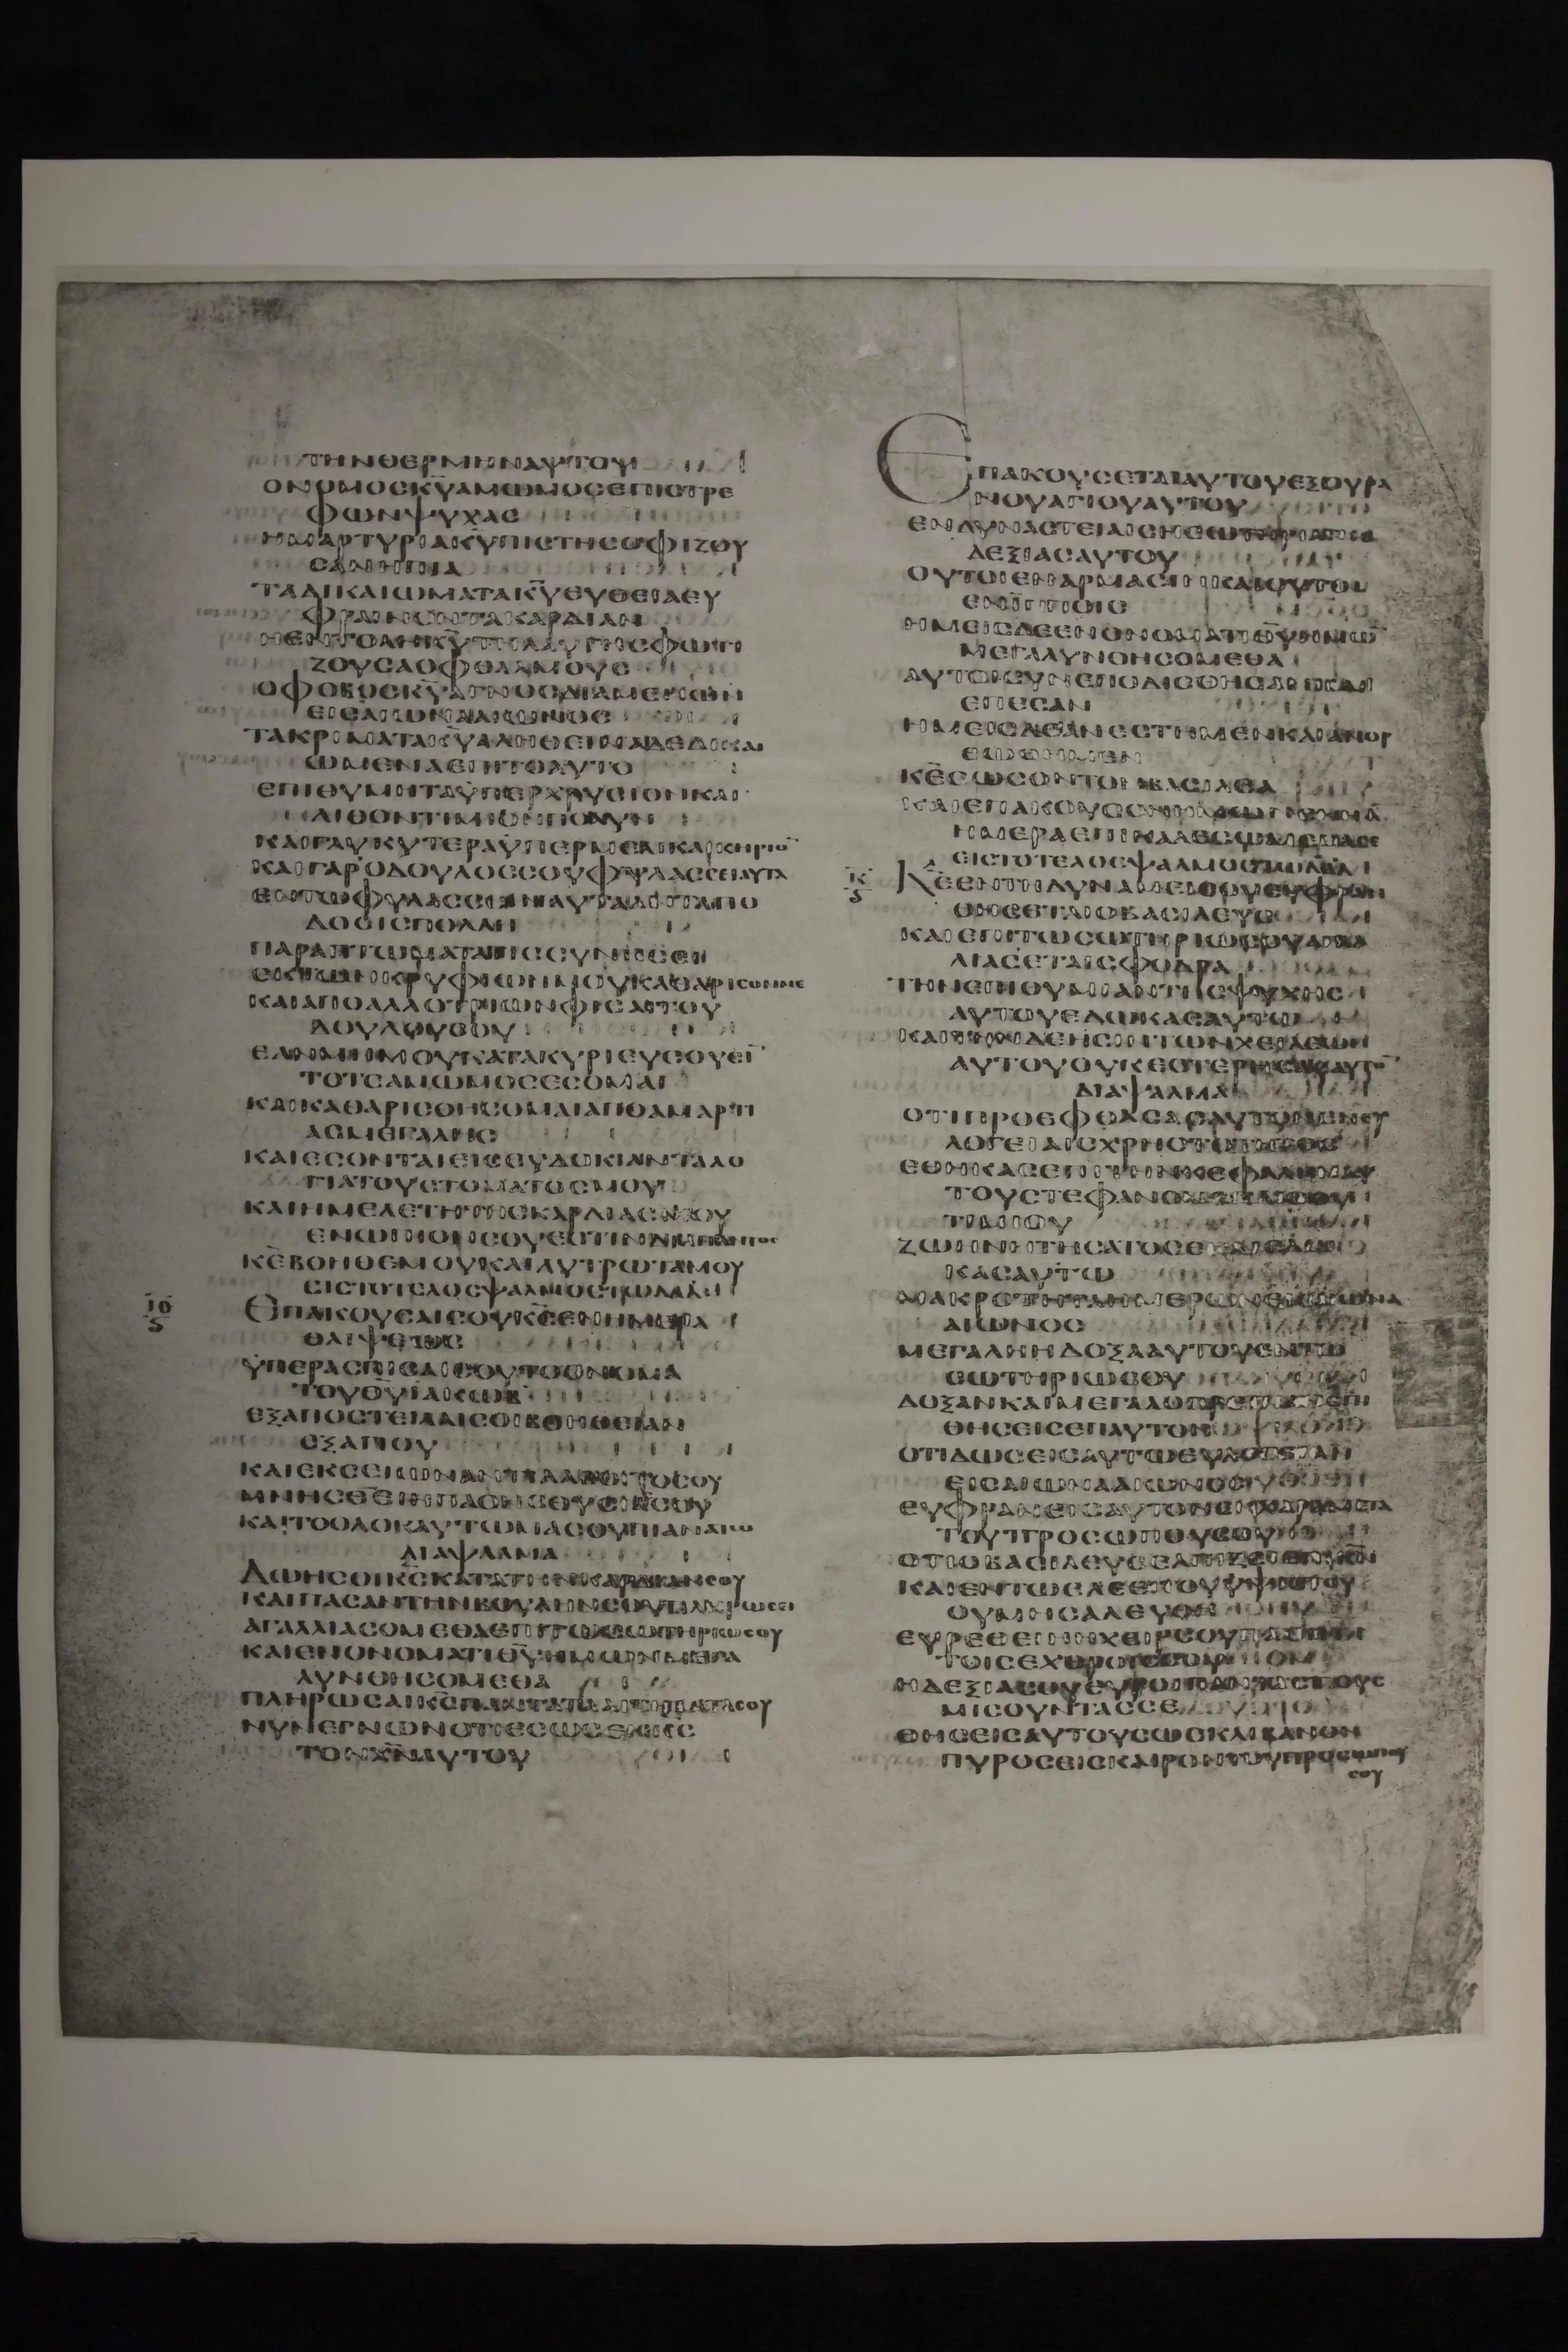 ΤΗΝΘΕΡΜΗΝΑΥΤΟΥ
ΟΝΟΜΟΣΚ̅Υ̅ΑΜΩΜΟΣΕΠΙΣΤΡΕ
ΦΩΝΨΥΧΑΣ
ΗΜΑΡΤΥΡΙΑΚ̅Υ̅ΠΙΣΤΗΣΟΦΙΖΟΥ
ΣΑΝΗΠΙΑ
ΤΑΔΙΚΑΙΩΜΑΤΑΚ̅Υ̅ΕΥΘΕΙΑΕΥ
ΦΡΑΙΝΟΝΤΑΚΑΡΔΙΑΝ
ΗΕΝΤΟΛΗΚ̅Υ̅ΤΗΛΑΥΓΗΣΦΩΤΙ
ΖΟΥΣΑΟΦΘΑΛΜΟΥΣ
ΟΦΟΒΟΣΚ̅Υ̅ΑΓΝΟΣΔΙΑΜΕΝΩΝ
ΕΙΣΑΙΩΝΑΑΙΩΝΟΣ
ΤΑΚΡΙΜΑΤΑΚ̅Υ̅ΑΛΗΘΕΙΝΑΔΕΔΙΚΑΙ
ΩΜΕΝΑΕΠΙΤΟΑΥΤΟ
ΕΠΙΘΥΜΗΤΑΥΠΕΡΧΡΥΣΙΟΝΚΑΙ
ΛΙΘΟΝΤΙΜΙΟΝΠΟΛΥΝ
ΚΑΙΓΛΥΚΥΤΕΡΑΥΠΕΡΜΕΛΙΚΑΙΚΗΡΙΟ̅
ΚΑΙΓΑΡΟΔΟΥΛΟΣΣΟΥΦΥΛΑΣΣΕΙΑΥΤΑ
ΕΝΤΩΦΥΛΑΣΣΕΙΝΑΥΤΑΑΝΤΑΠΟ
ΔΟΣΙΣΠΟΛΛΗ
ΠΑΡΑΠΤΩΜΑΤΑΤΙΣΣΥΝΗΣΕΙ
ΕΚΤΩΝΚΡΥΦΙΩΝΜΟΥΚΑΘΑΡΙΣΟΝΜΕ
ΚΑΙΑΠΟΑΛΛΟΤΡΙΩΝΦΙΣΑΙΤΟΥ
ΔΟΥΛΟΥΣΟΥ
ΕΑΝΜΗΜΟΥΚΑΤΑΚΥΡΙΕΥΣΟΥΣΙ̅
ΤΟΤΕΑΜΩΜΟΣΕΣΟΜΑΙ
ΚΑΙΚΑΘΑΡΙΣΘΗΣΟΜΑΙΑΠΟΑΜΑΡΤΙ
ΑΣΜΕΓΑΛΗΣ
ΚΑΙΕΣΟΝΤΑΙΕΙΣΕΥΔΟΚΙΑΝΤΑΛΟ
ΓΙΑΤΟΥΣΤΟΜΑΤΟΣΜΟΥ
ΚΑΙΗΜΕΛΕΤΗΤΗΣΚΑΡΔΙΑΣΜΟΥ
ΕΝΩΠΙΟΝΣΟΥΕΣΤΙΝΔΙΑΠΑΝΤΟΣ
Κ̅Ε̅ΒΟΗΘΕΜΟΥΚΑΙΛΥΤΡΩΤΑΜΟΥ
ΕΙΣΤΟΤΕΛΟΣΨΑΛΜΟΣΤΩΔΑΔ
ΙΘ
ΕΠΑΚΟΥΣΑΙΣΟΥΚ̅Σ̅ΕΝΗΜΕΡΑ
ΘΛΙΨΕΩΣ
ΥΠΕΡΑΣΠΙΣΑΙΣΟΥΤΟΟΝΟΜΑ
ΤΟΥΘ̅Υ̅ΙΑΚΩΒ
ΕΞΑΠΟΣΤΕΙΛΑΙΣΟΙΒΟΗΘΕΙΑΝ
ΕΞΑΓΙΟΥ
ΚΑΙΕΚΣΕΙΩΝΑΝΤΙΛΑΒΟΙΤΟΣΟΥ
ΜΝΗΣΘΕΙΗΠΑΣΗΣΘΥΣΙΑΣΣΟΥ
ΚΑΙΤΟΟΛΟΚΑΥΤΩΜΑΣΟΥΠΙΑΝΑΤΩ
ΔΙΑΨΑΛΜΑ
ΔΩΗΣΟΙΚ̅Σ̅ΚΑΤΑΤΗΝΚΑΡΔΙΑΝΣΟΥ
ΚΑΙΠΑΣΑΝΤΗΝΒΟΥΛΗΝΣΟΥΠΛΗΡΩΣΕΙ
ΑΓΑΛΛΙΑΣΟΜΕΘΑΕΠΙΤΩΣΩΤΗΡΙΩΣΟΥ
ΚΑΙΕΝΟΝΟΜΑΤΙΘ̅Υ̅ΗΜΩΝΜΕΓΑ
ΛΥΝΘΗΣΟΜΕΘΑ
ΠΛΗΡΩΣΑΙΚ̅Σ̅ΠΑΝΤΑΤΑΑΙΤΗΜΑΤΑΣΟΥ
ΝΥΝΕΓΝΩΝΟΤΙΕΣΩΣΕΝΚ̅Σ̅
ΤΟΝΧ̅Ν̅ΑΥΤΟΥ
ΕΠΑΚΟΥΣΕΤΑΙΑΥΤΟΥΕΞΟΥΡΑ
ΝΟΥΑΓΙΟΥΑΥΤΟΥ
ΕΝΔΥΝΑΣΤΕΙΑΙΣΗΣΩΤΗΡΙΑΤΗΣ
ΔΕΞΙΑΣΑΥΤΟΥ
ΟΥΤΟΙΕΝΑΡΜΑΣΙΝΚΑΙΟΥΤΟΙ
ΕΝΙΠΠΟΙΣ
ΗΜΕΙΣΔΕΕΝΟΝΟΜΑΤΙΘ̅Υ̅ΗΜΩ̅
ΜΕΓΑΛΥΝΘΗΣΟΜΕΘΑ
ΑΥΤΟΙΣΥΝΕΠΟΔΙΣΘΗΣΑΝΚΑΙ
ΕΠΕΣΑΝ
ΗΜΕΙΣΔΕΑΝΕΣΤΗΜΕΝΚΑΙΑΝΩΡ
ΘΩΘΗΜΕΝ
Κ̅Ε̅ΣΩΣΟΝΤΟΝΒΑΣΙΛΕΑ
ΚΑΙΕΠΑΚΟΥΣΟΝΗΜΩΝΕΝΗΑ̅
ΗΜΕΡΑΕΠΙΚΑΛΕΣΩΜΕΘΑΣΕ
ΕΙΣΤΟΤΕΛΟΣΨΑΛΜΟΣΤΩΔΑΔ
Κ
Κ̅Ε̅ΕΝΤΗΔΥΝΑΜΕΙΣΟΥΕΥΦΡΑΝ
ΘΗΣΕΤΑΙΟΒΑΣΙΛΕΥΣ
ΚΑΙΕΠΙΤΩΣΩΤΗΡΙΩΣΟΥΑΓΑΛ
ΛΙΑΣΕΤΑΙΣΦΟΔΡΑ
ΤΗΝΕΠΙΘΥΜΙΑΝΤΗΣΨΥΧΗΣ
ΑΥΤΟΥΕΔΩΚΑΣΑΥΤΩ
ΚΑΙΤΗΝΔΕΗΣΙΝΤΩΝΧΕΙΛΕΩΝ
ΑΥΤΟΥΟΥΚΕΣΤΕΡΗΣΑΣΑΥΤΟ̅
ΔΙΑΨΑΛΜΑ
ΟΤΙΠΡΟΕΦΘΑΣΑΣΑΥΤΟΝΕΝΕΥ
ΛΟΓΕΙΑΙΣΧΡΗΣΤΟΤΗΤΟΣ
ΕΘΗΚΑΣΕΠΙΤΗΝΚΕΦΑΛΗΝΑΥ
ΤΟΥΣΤΕΦΑΝΟΝΕΚΛΙΘΟΥ
ΤΙΜΙΟΥ
ΖΩΗΝΗΤΗΣΑΤΟΣΕΚΑΙΕΔΩ
ΚΑΣΑΥΤΩ
ΜΑΚΡΟΤΗΤΑΗΜΕΡΩΝΕΙΣΑΙΩΝΑ
ΑΙΩΝΟΣ
ΜΕΓΑΛΗΗΔΟΞΑΑΥΤΟΥΕΝΤΩ
ΣΩΤΗΡΙΩΣΟΥ
ΔΟΞΑΝΚΑΙΜΕΓΑΛΟΠΡΕΠΕΙΑΝΕΠΙ
ΘΗΣΕΙΣΕΠΑΥΤΟΝ
ΟΤΙΔΩΣΕΙΣΑΥΤΩΕΥΛΟΓΙΑΝ
ΕΙΣΑΙΩΝΑΑΙΩΝΟΣ
ΕΥΦΡΑΝΕΙΣΑΥΤΟΝΕΝΧΑΡΑΜΕΤΑ
ΤΟΥΠΡΟΣΩΠΟΥΣΟΥ
ΟΤΙΟΒΑΣΙΛΕΥΣΕΛΠΙΖΕΙΕΠΙΚ̅Ν̅
ΚΑΙΕΝΤΩΕΛΕΕΙΤΟΥΥΨΙΣΤΟΥ
ΟΥΜΗΣΑΛΕΥΘΗ
ΕΥΡΕΘΕΙΗΗΧΕΙΡΣΟΥΠΑΣΙΝ
ΤΟΙΣΕΧΘΡΟΙΣΣΟΥ
ΗΔΕΞΙΑΣΟΥΕΥΡΟΙΠΑΝΤΑΣΤΟΥΣ
ΜΙΣΟΥΝΤΑΣΣΕ
ΘΗΣΕΙΣΑΥΤΟΥΣΩΣΚΛΙΒΑΝΟΝ
ΠΥΡΟΣΕΙΣΚΑΙΡΟΝΤΟΥΠΡΟΣΩΠΟΥ
ΣΟΥ